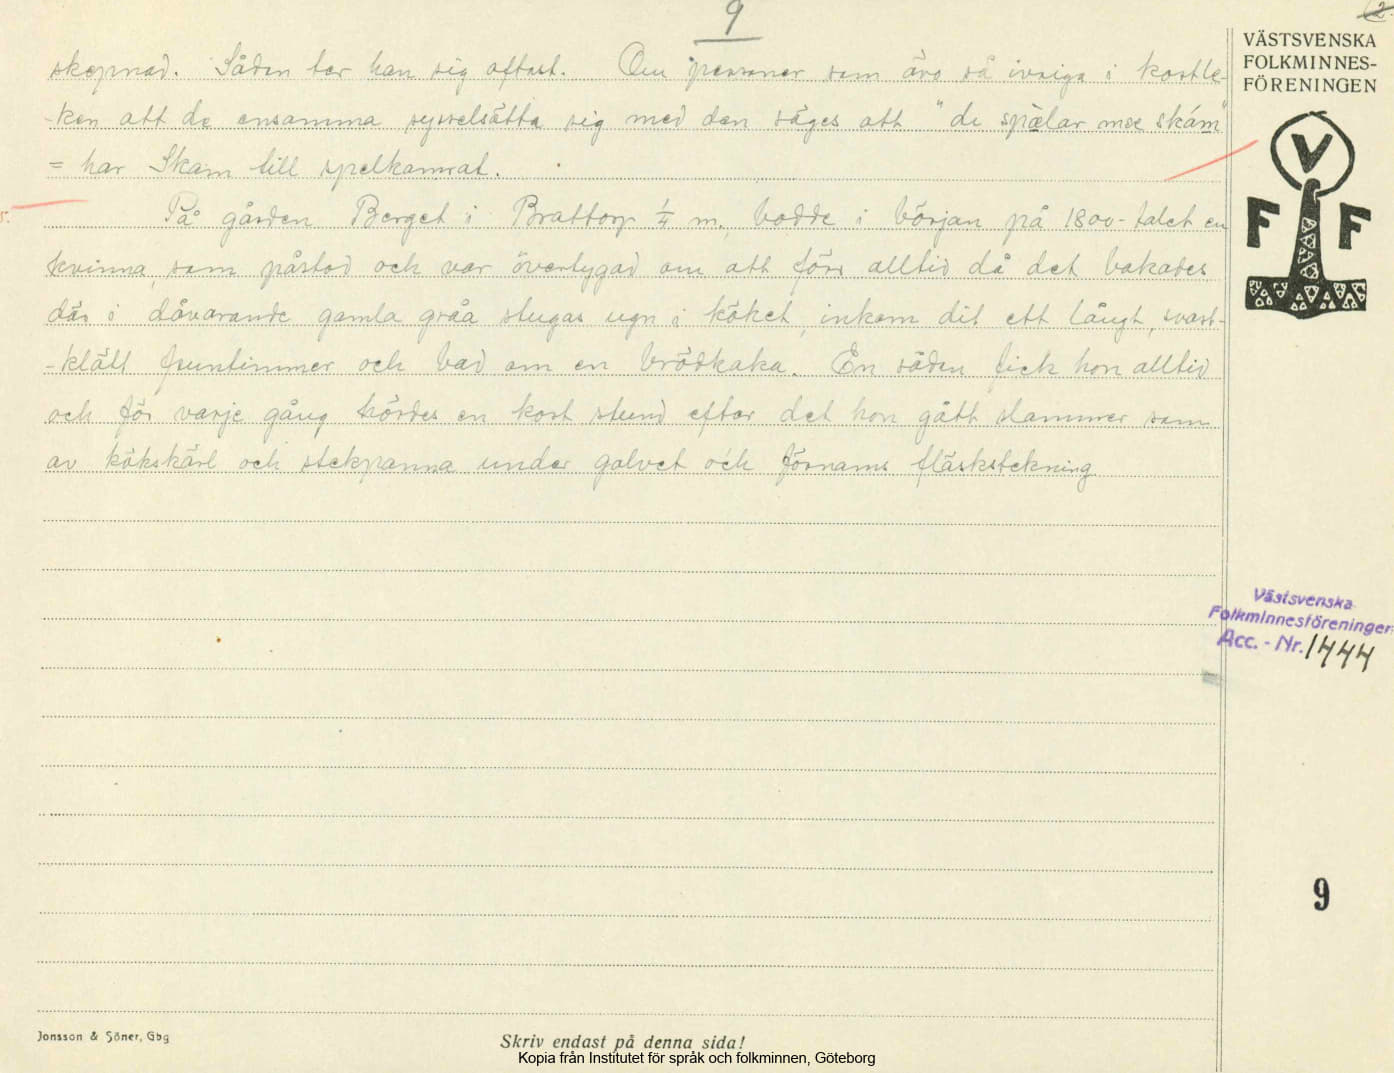 9
2.
skepnad. Sådan ter han sig oftast. Om personer som äro så ivriga i kortle-
-ken att de ensamma sysselsätta sig med den säges att "de spèlar mæ skám"
= har Skam till spelkamrat.
5.
På gården Berget i Brattorp ¼ m., bodde i början på 1800-talet en
kvinna, som påstod och var övertygad om att förr alltid då det bakades
där i dåvarande gamla gråa stugas ugn i köket, inkom dit ett långt, svart-
-klätt fruntimmer och bad om en brödkaka. En sådan fick hon alltid
och för varje gång hördes en kort stund efter det hon gått slammer som
av kökskärl och stekpanna under golvet och förnams fläskstekning
VÄSTSVENSKA
FOLKMINNES-
FÖRENINGEN
V
F F
Västsvenska
Folkminnesföreningen
Acc. - Nr. 1444
9
Jonsson & Söner, Gbg
Skriv endast på denna sida!
Kopia från Institutet för språk och folkminnen, Göteborg